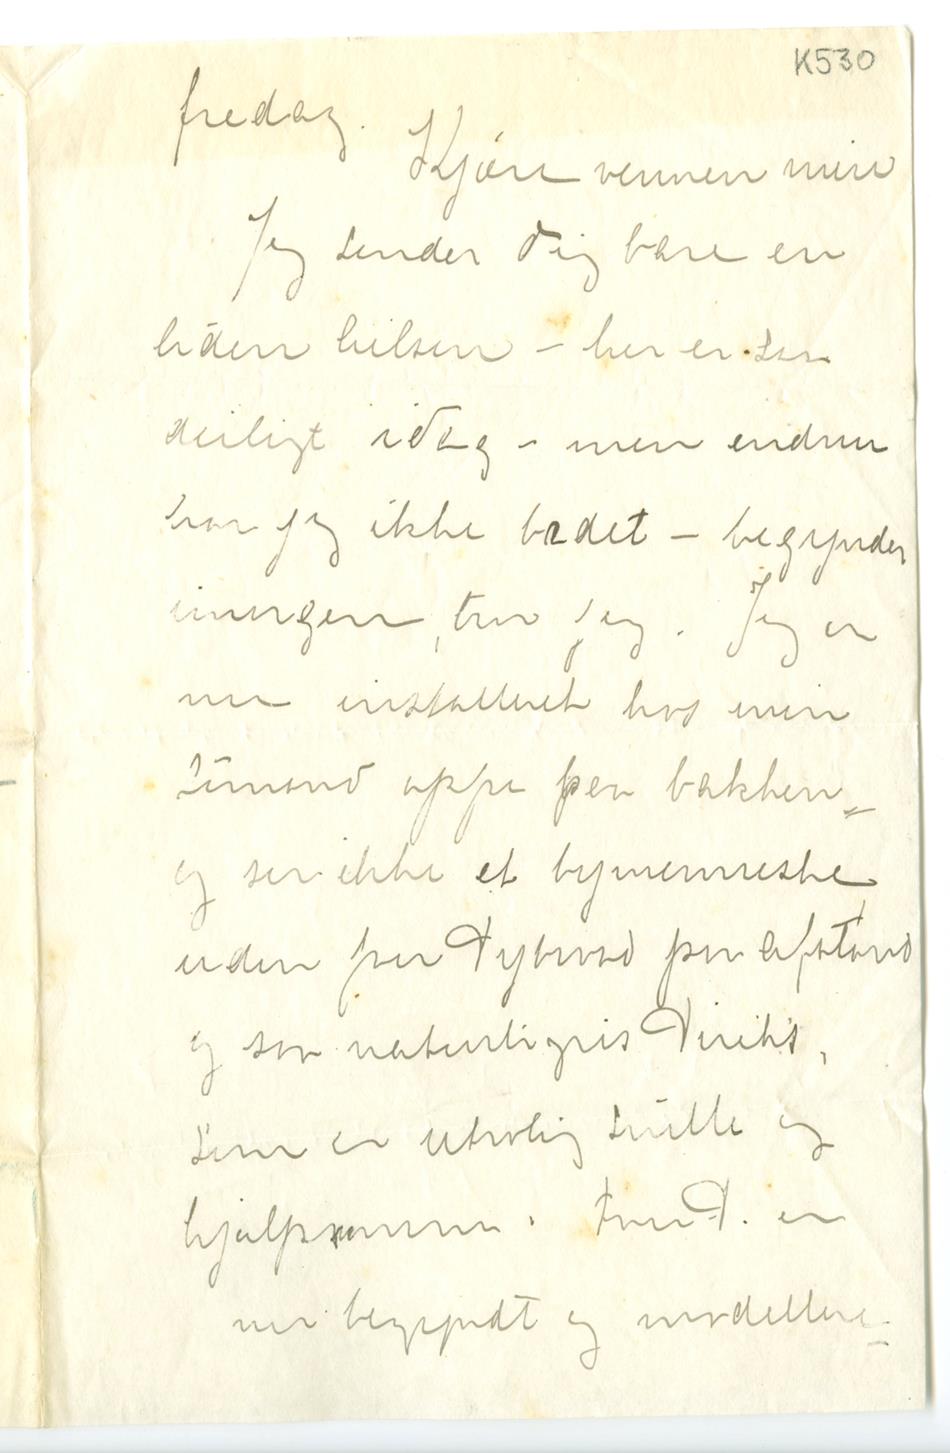 K530
fredag.
Kjære vennen min
Jeg sender dig bare en
liden hilsen – her er saa
deiligt idag – men endnu
har jeg ikke badet – begynder
imorgen, tror jeg. Jeg er
nu installeret hos min
sømand oppe paa bakken –
og ser ikke et bymenneske
uden fru Dybwad paa afstand
og saa naturligvis Diriks,
som er utrolig snille og
hjælpsomme. Fru D. er
nu begyndt og modellere –